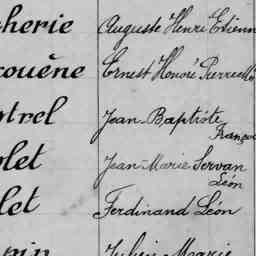 cherie Auguste Henri Etienn
couëne Ernest Honoré Pierre
trel Jean-Baptiste
François
let Jean-Marie Servan
Léon
let Ferdinand Léon
pin Julien Marie